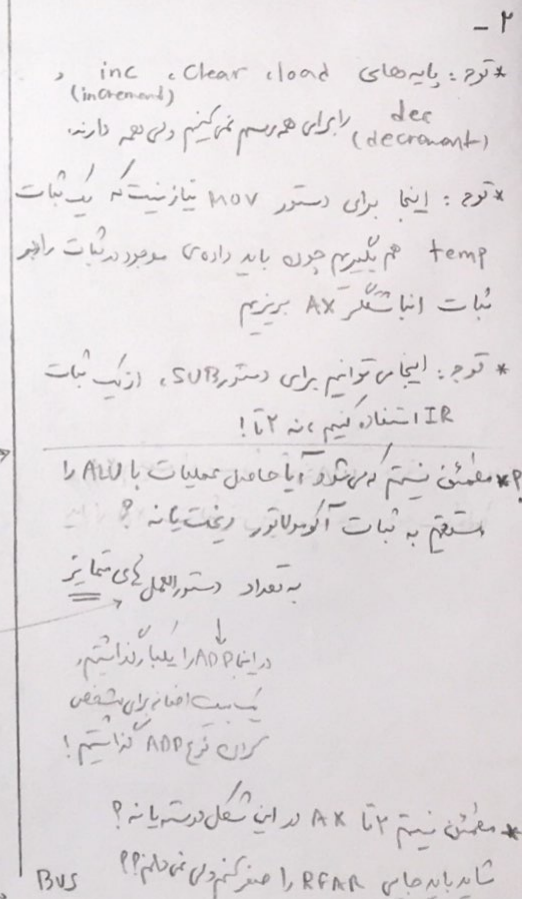 ۲ -
* توجه : پایه‌های load ، Clear ، inc و
(increment)
dec را برای همه رسم نمی‌کنیم ولی همه دارند.
(decrement)
* توجه : اینجا برای دستور MOV نیاز نیست که یک ثبات
temp هم بگیریم چون باید داده‌ی موجود در ثبات را در
ثبات انباشتگر AX بریزیم
* توجه : اینجا می‌توانیم برای دستور SUB، از یک ثبات
IR استفاده کنیم ، نه ۲ تا !
؟* مطمئن نیستم که می‌شود آیا حاصل عملیات با ALU را
مستقیم به ثبات آکومولاتور ریخت یا نه ؟
به تعداد دستورالعمل‌های متمایز
در اینجا ADD را یکبار گذاشتیم،
یک بیت اضافه برای مشخص
کردن نوع ADD گذاشتیم !
* مطمئن نیستم ۲ تا AX در این شکل درسته یا نه ؟
شاید باید جای RFAR را صفر کنم ولی نمی‌دانم ؟؟
Bus